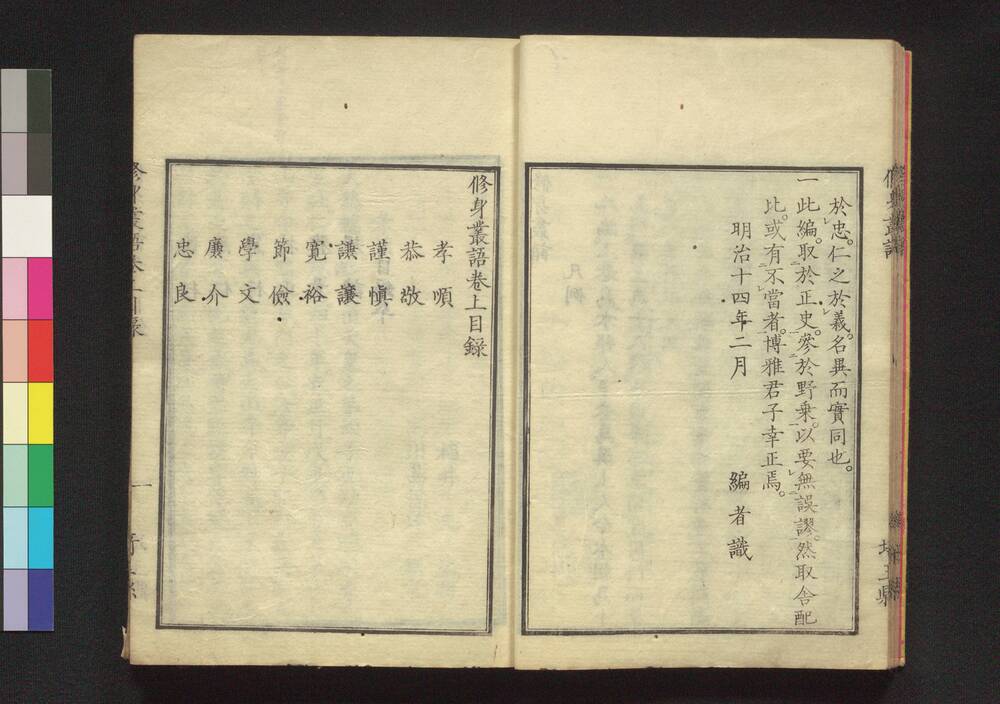 於忠。仁之於義。名異而實同也。
一此編。取於正史。參於野乗。以要無誤謬。然取舍配
比。或有不當者。博雅君子幸正焉。
明治十四年二月
編者識
修身叢語卷上目錄
孝順
恭敬
謹愼
謙讓
寛裕
節儉
學文
廉介
忠良
一